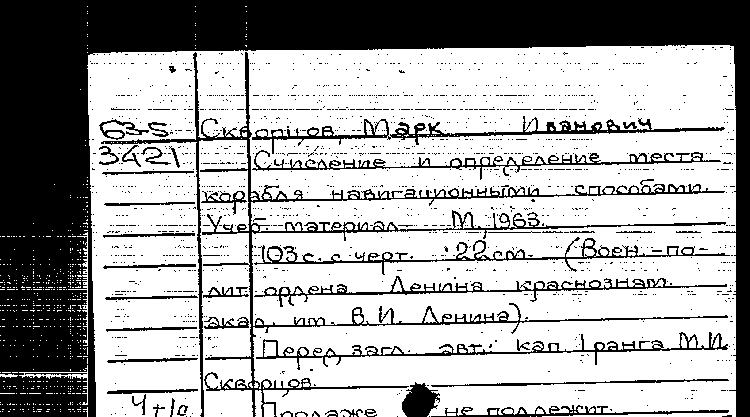 63-5 Скворцов, Марк Иванович
3421 Счисление и определение места
корабля навигационными способами.
Учеб. материал. М., 1963.
103 с. с черт. 22 см. (Воен.-по-
лит. ордена Ленина краснознам.
акад. им. В.И. Ленина).
Перед загл. авт.: кап. 1 ранга М.И.
Скворцов.
Продаже не подлежит.